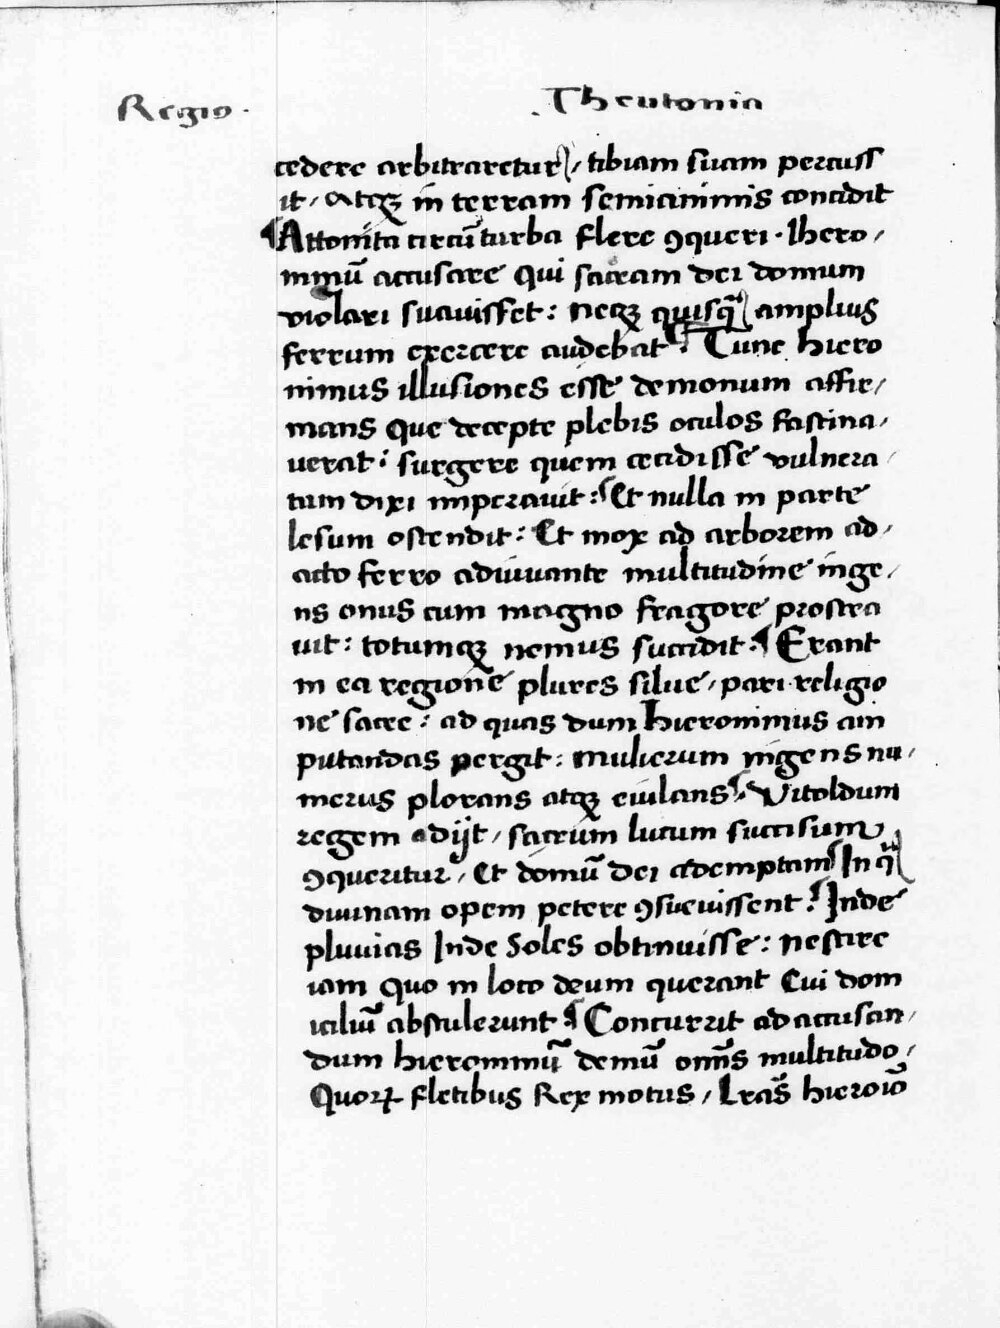 Regio.
Theutonia
cedere arbitraretur, tibiam suam percuss
it, atqꝫ in terram semianimis concidit
¶ Attonita circū turba flere ꝯqueri. Ihero,
nimū accusare qui sacram dei domum
violari suavisset: neqꝫ quisqᷓ amplius
ferrum exercere audebat. ¶ Tunc hiero
nimus illusiones esse demonum affir,
mans que decepte plebis oculos fascina,
verat: surgere quem cecidisse vulnera,
tum dixi imperavit: Et nulla in parte
lesum ostendit: Et mox ad arborem ad,
acto ferro adiuvante multitudine inge,
ns onus cum magno fragore prostra
uit: totumqꝫ nemus succidit. ¶ Erant
in ea regione plures silue, pari religio
ne sacre: ad quas dum hieronimus am
putandas pergit: mulierum ingens nu,
merus plorans atqꝫ eiulans, Vitoldum
regem adijt, sacrum lucum succisum
ꝯqueritur, Et domū dei ademptam In qᷓ
divinam opem petere ꝯsuevissent: Inde
pluvias Inde Soles obtinuisse: nescire
iam quo in loco deum querant Cui dom
iciliū abstulerunt ¶ Concurrit ad accusan,
dum hieronimū demū om̄s multitudo,
Quoꝝ fletibus Rex motus, Lr̄as hieroīo